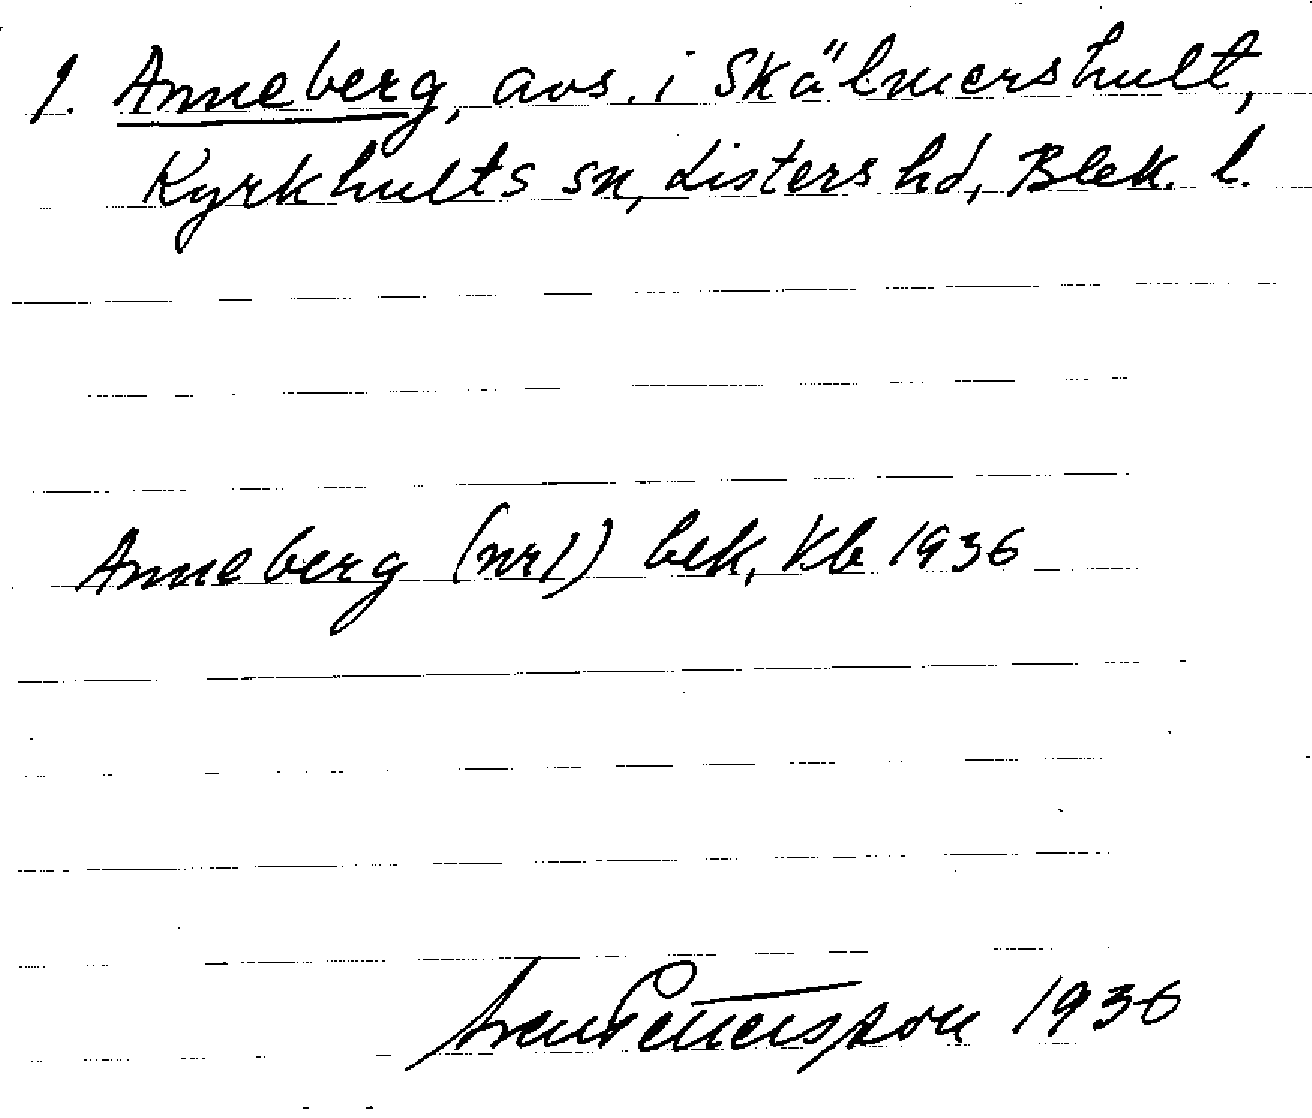 1. Anneberg, avs. i Skälmershult,
Kyrkhults sn, Listers hd, Blek. l.
Anneberg (nr 1) bek, Kb 1936
Sven Pettersson 1936